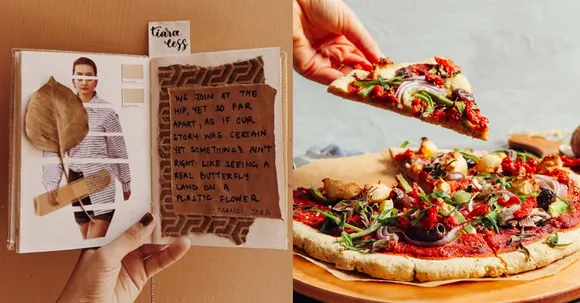 tiara
less
WE JOIN AT THE
HIP, YET SO FAR
APART, AS IF OUR
STORY WAS CERTAIN
YET SOMETHING AIN'T
RIGHT. LIKE SEEING A
REAL BUTTERFLY
LAND ON A
PLASTIC FLOWER